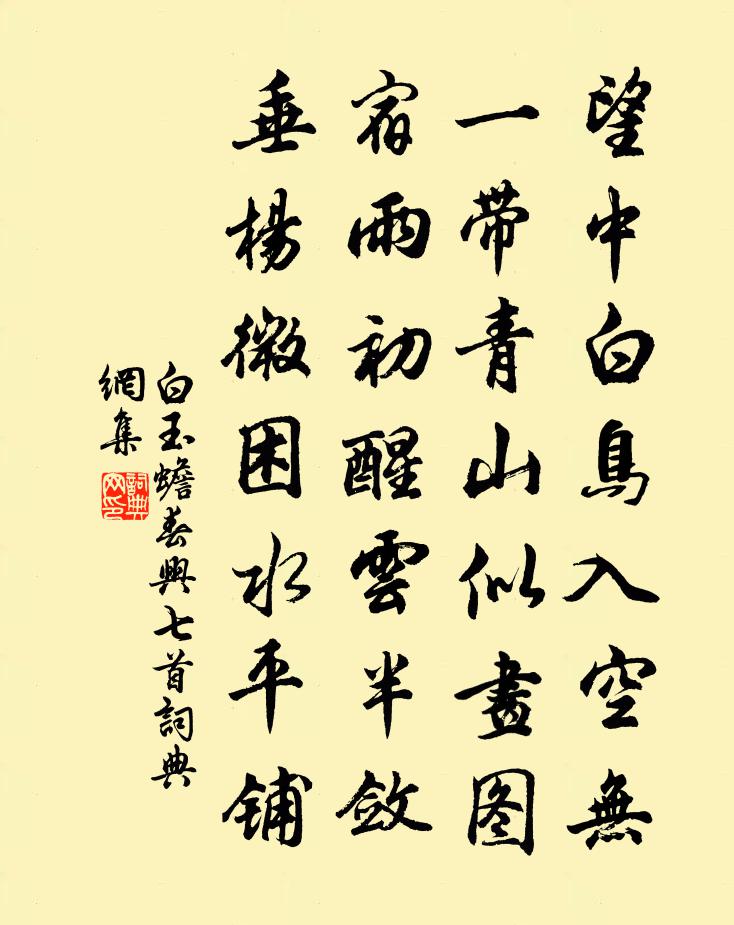 望中白鳥入空無
一帶青山似畫图
宿雨初醒雲半斂
垂楊微困水平鋪
白玉蟾春興七首詞典
網集
詞典
网印